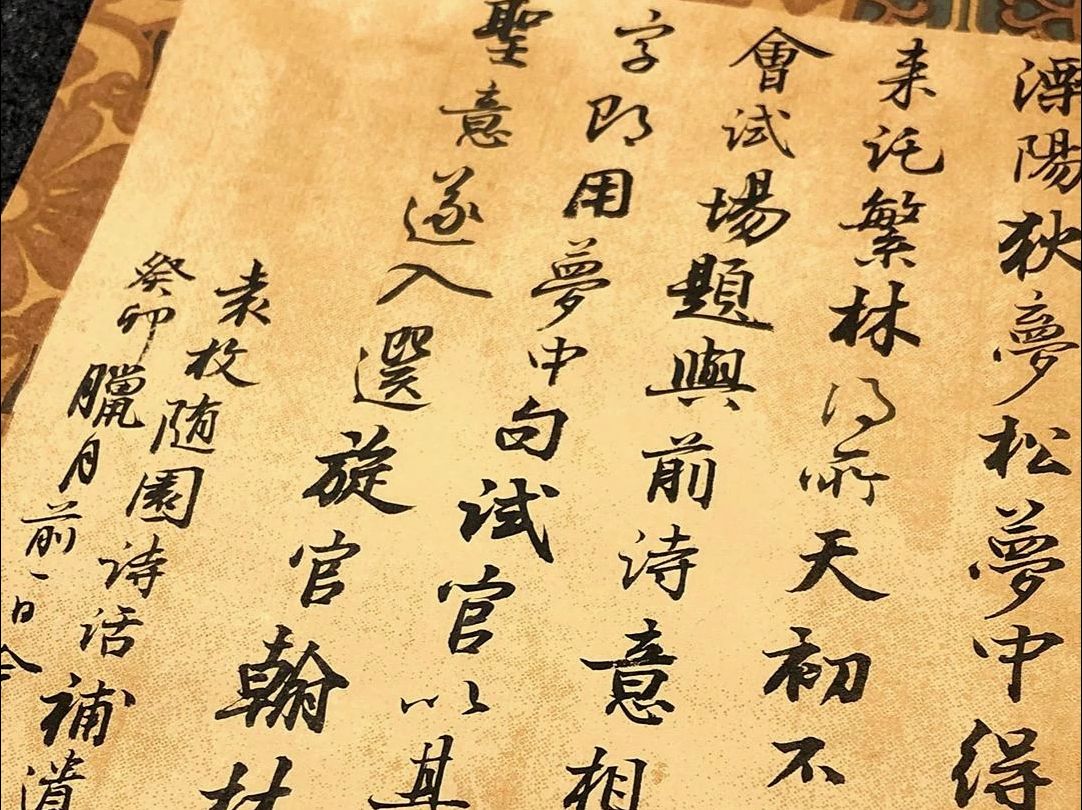 溧陽狄夢松夢中得
来託繁林得所天初不
會試場題與前詩意相
字即用夢中句試官以其
聖意遂入選旋官翰林
袁枚随園诗话補遺
癸卯臘月前一日